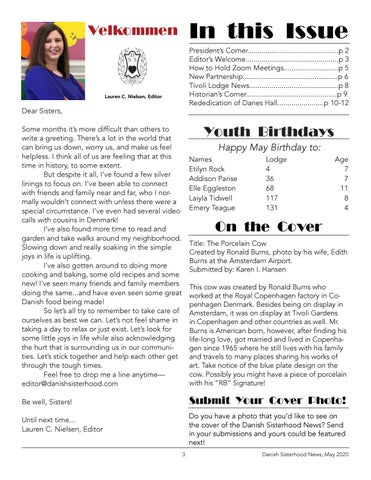 Velkommen
Lauren C. Nielsen, Editor
Dear Sisters,
Some months it's more difficult than others to
write a greeting. There's a lot in the world that
can bring us down, worry us, and make us feel
helpless. I think all of us are feeling that at this
time in history, to some extent.
But despite it all, I've found a few silver
linings to focus on. I've been able to connect
with friends and family near and far, who I nor-
mally wouldn't connect with unless there were a
special circumstance. I've even had several video
calls with cousins in Denmark!
I've also found more time to read and
garden and take walks around my neighborhood.
Slowing down and really soaking in the simple
joys in life is uplifting.
I've also gotten around to doing more
cooking and baking, some old recipes and some
new! I've seen many friends and family members
doing the same...and have even seen some great
Danish food being made!
So let's all try to remember to take care of
ourselves as best we can. Let's not feel shame in
taking a day to relax or just exist. Let's look for
some little joys in life while also acknowledging
the hurt that is surrounding us in our communi-
ties. Let's stick together and help each other get
through the tough times.
Feel free to drop me a line anytime—
editor@danishsisterhood.com
Be well, Sisters!
Until next time...
Lauren C. Nielsen, Editor
In this Issue
President's Corner............................................p 2
Editor's Welcome.............................................p 3
How to Hold Zoom Meetings..........................p 5
New Partnership..............................................p 6
Tivoli Lodge News...........................................p 8
Historian's Corner...........................................p 9
Rededication of Danes Hall.......................p 10-12
Youth Birthdays
Happy May Birthday to:
Names Lodge Age
Etilyn Rock 4 7
Addison Parise 36 7
Elle Eggleston 68 11
Laiyla Tidwell 117 8
Emery Teague 131 4
On the Cover
Title: The Porcelain Cow
Created by Ronald Burns, photo by his wife, Edith
Burns at the Amsterdam Airport.
Submitted by: Karen I. Hansen
This cow was created by Ronald Burns who
worked at the Royal Copenhagen factory in Co-
penhagen Denmark. Besides being on display in
Amsterdam, it was on display at Tivoli Gardens
in Copenhagen and other countries as well. Mr.
Burns is American born, however, after finding his
life-long love, got married and lived in Copenha-
gen since 1965 where he still lives with his family
and travels to many places sharing his works of
art. Take notice of the blue plate design on the
cow. Possibly you might have a piece of porcelain
with his "RB" Signature!
Submit Your Cover Photo!
Do you have a photo that you'd like to see on
the cover of the Danish Sisterhood News? Send
in your submissions and yours could be featured
next!
3 Danish Sisterhood News, May 2020